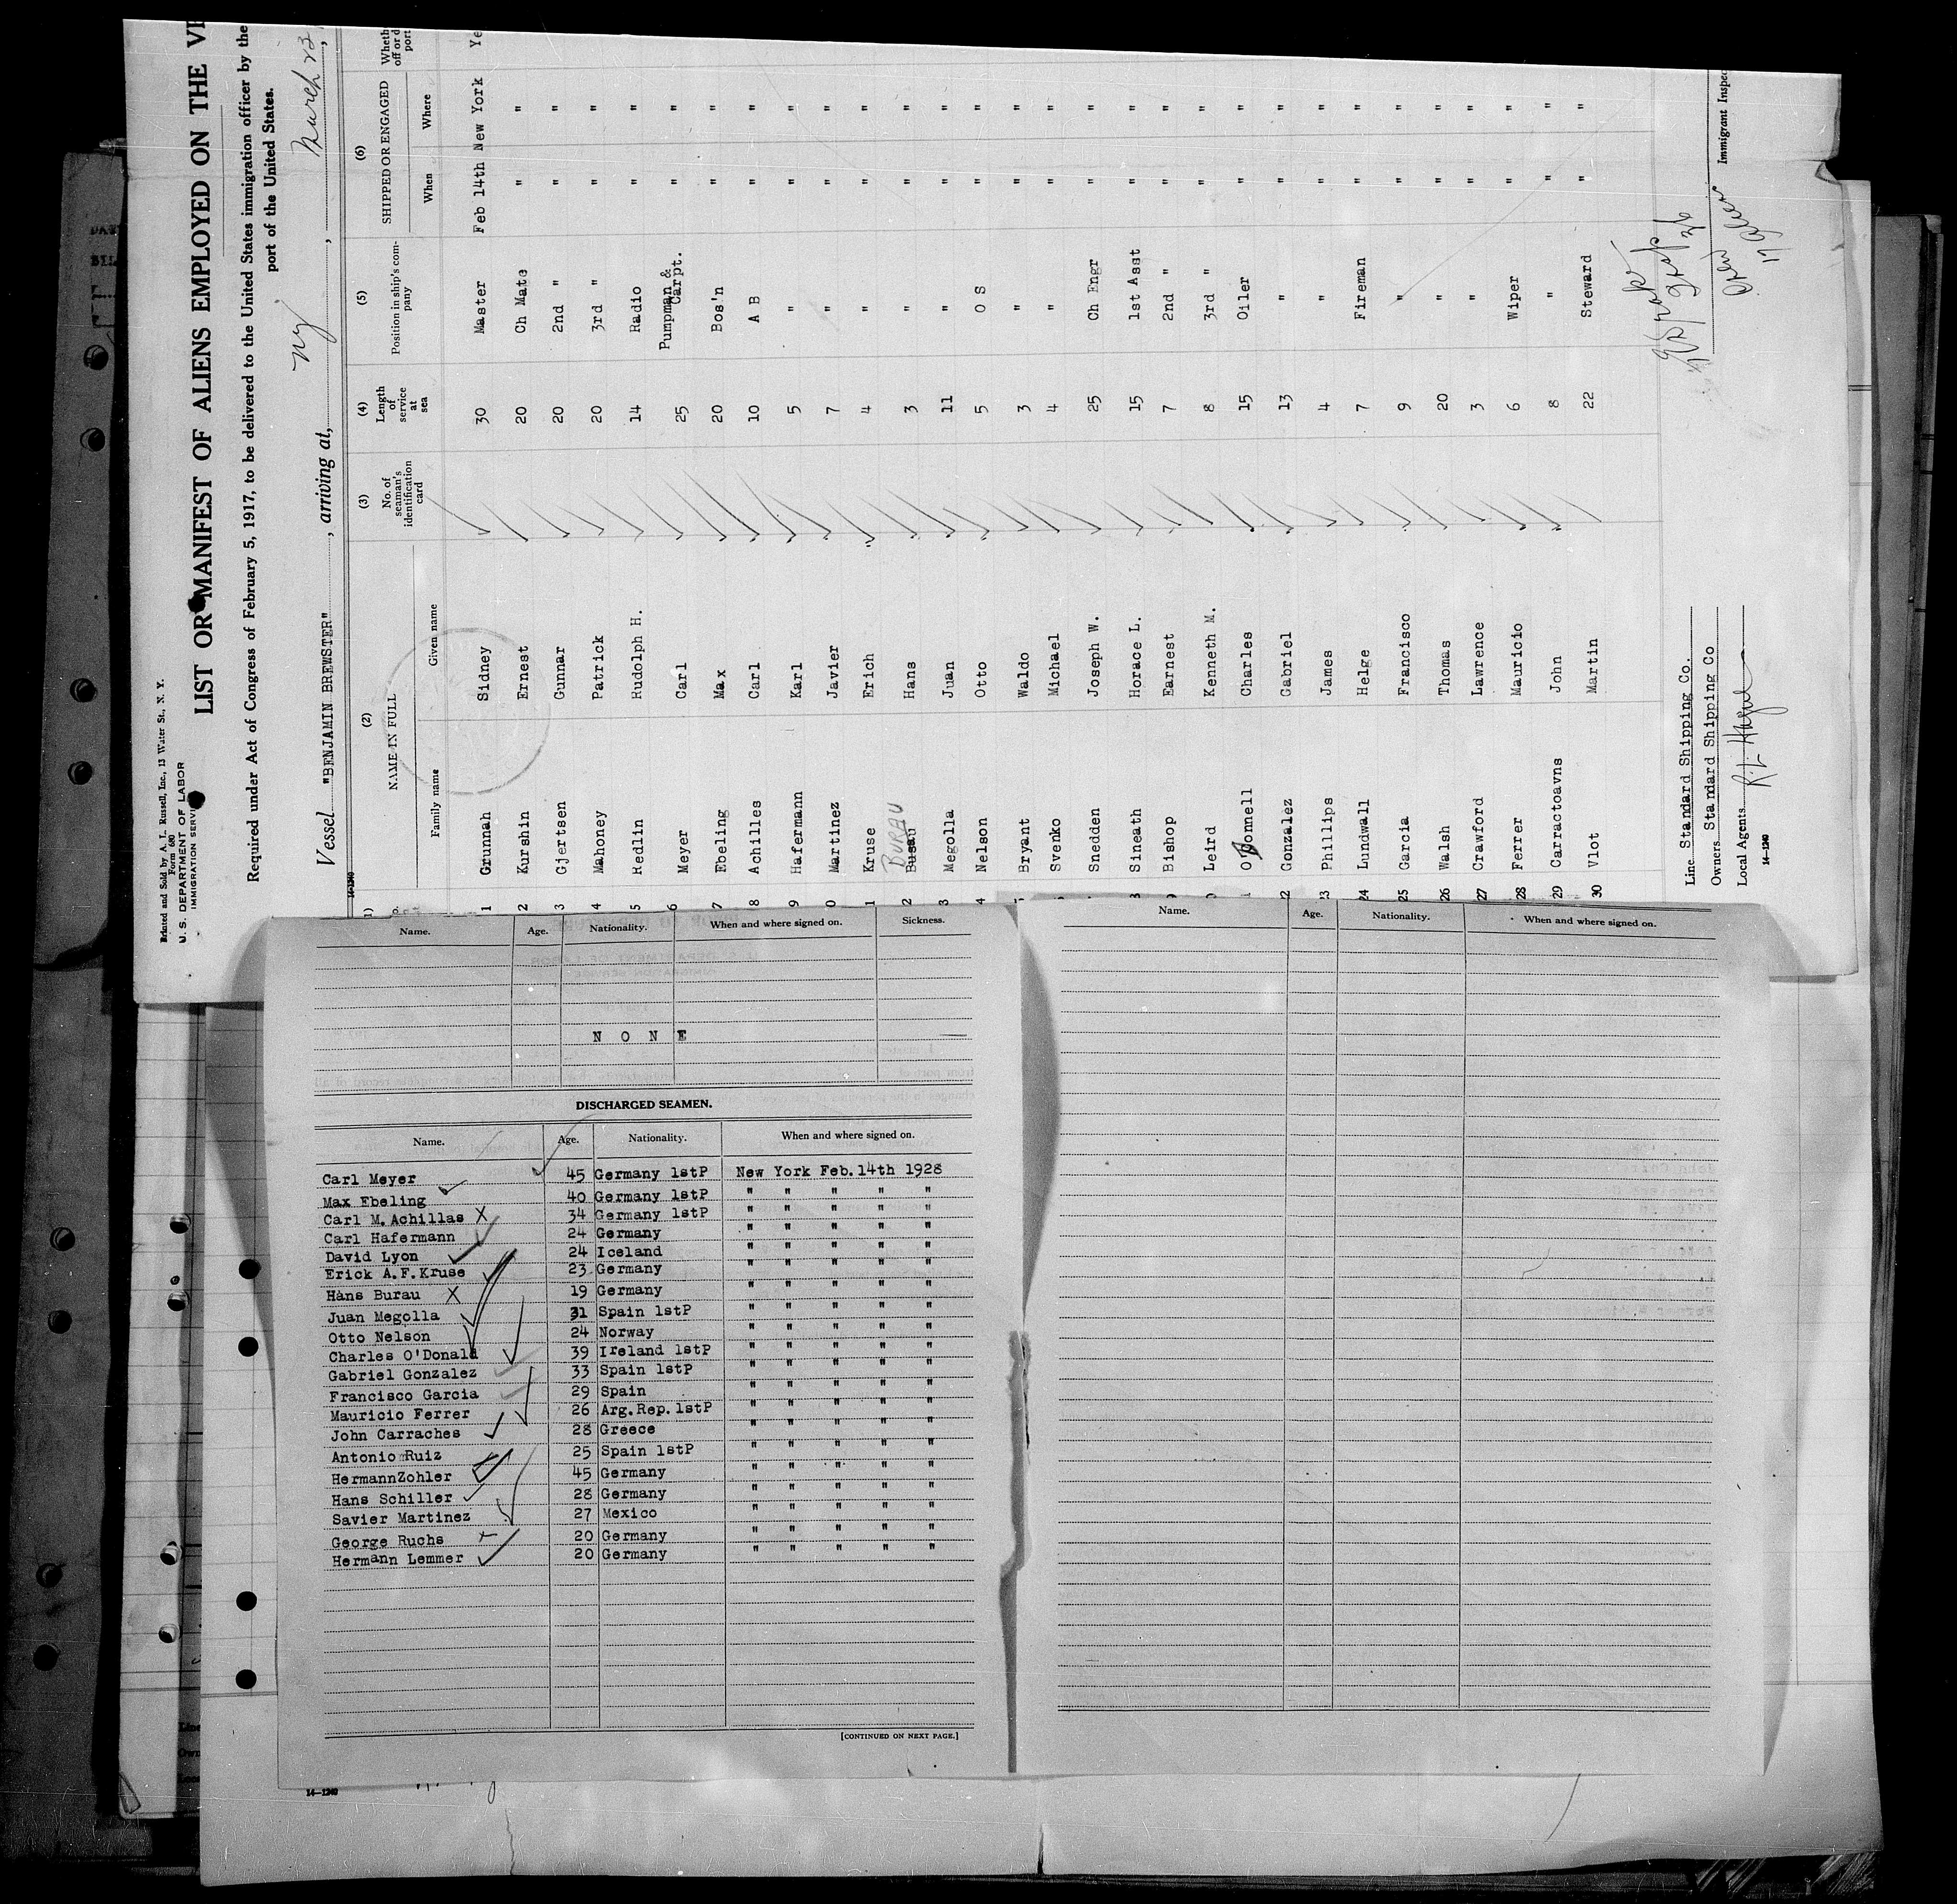 Printed and Sold by A. L. Russell, Inc., 13 Water St., N. Y.
Form 680
U. S. DEPARTMENT OF LABOR
IMMIGRATION SERVICE
LIST OR MANIFEST OF ALIENS EMPLOYED ON THE
Required under Act of Congress of February 5, 1917, to be delivered to the United States immigration officer by the
port of the United States.
Vessel "BENJAMIN BREWSTER", arriving at, NY, March 23,
14-1240
(2) (3) (4) (5) (6)
NAME IN FULL No. of seaman's identification card Length of service at sea Position in ship's company SHIPPED OR ENGAGED
Family name Given name When Where
1 Grunnah Sidney 30 Master Feb 14th New York
2 Kurshin Ernest 20 Ch Mate " "
3 Gjertsen Gunnar 20 2nd " " "
4 Mahoney Patrick 20 3rd " " "
5 Redlin Rudolph H. 14 Radio " "
6 Meyer Carl 25 Pumpman & Carpt. " "
7 Ebeling Max 20 Bos'n " "
8 Achilles Carl 10 A B " "
9 Hafermann Karl 5 " " "
0 Martinez Javier 7 " " "
1 Kruse Erich 4 " " "
2 BURAU Hans 3 " " "
3 Megolla Juan 11 " " "
4 Nelson Otto 5 O S " "
Bryant Waldo 3 " " "
Svenko Michael 4 " " "
Snedden Joseph W. 25 Ch Engr " "
8 Sineath Horace L. 15 1st Asst " "
9 Bishop Earnest 7 2nd " " "
0 Leird Kenneth M. 8 3rd " " "
1 O'Donnell Charles 15 Oiler " "
22 Gonzalez Gabriel 13 " " "
23 Phillips James 4 " " "
24 Lundwall Helge 7 Fireman " "
25 Garcia Francisco 9 " " "
26 Walsh Thomas 20 " " "
27 Crawford Lawrence 3 " " "
28 Ferrer Mauricio 6 Wiper " "
29 Carractoavns John 8 " " "
30 Vlot Martin 22 Steward " "
Line Standard Shipping Co.
Owners Standard Shipping Co
Local Agents
14-1240
Immigrant Inspec
Name. Age. Nationality. When and where signed on. Sickness.
N O N E
DISCHARGED SEAMEN.
Name. Age. Nationality. When and where signed on.
Carl Meyer 45 Germany 1stP New York Feb.14th 1928
Max Ebeling 40 Germany 1stP " " " " "
Carl M. Achillas X 34 Germany 1stP " " " " "
Carl Hafermann 24 Germany " " " " "
David Lyon 24 Iceland " " " " "
Erick A.F.Kruse 23 Germany " " " " "
Hans Burau X 19 Germany " " " " "
Juan Megolla 31 Spain 1stP " " " " "
Otto Nelson 24 Norway " " " " "
Charles O'Donald 39 Ireland 1stP " " " " "
Gabriel Gonzalez 33 Spain 1stP " " " " "
Francisco Garcia 29 Spain " " " " "
Mauricio Ferrer 26 Arg.Rep.1stP " " " " "
John Carraches 28 Greece " " " " "
Antonio Ruiz 25 Spain 1stP " " " " "
HermannZohler 45 Germany " " " " "
Hans Schiller 28 Germany " " " " "
Savier Martinez 27 Mexico " " " " "
George Ruchs 20 Germany " " " " "
Hermann Lemmer 20 Germany " " " " "
[CONTINUED ON NEXT PAGE.]
Name. Age. Nationality. When and where signed on.
14-1240